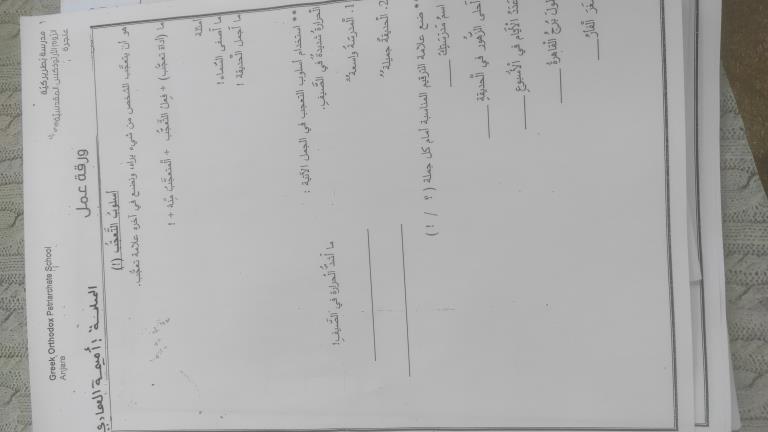 مدرسة بطريركية
Greek Orthodox Patriarchate School
الروم الأرثوذكس المقدسية
عنجرة
Anjara
ورقة عمل
المعلمة : أميمة العمادي
أسلوبُ التَّعجُّب (!)
هو أن يتعجَّب الشخص من شيءٍ يراه، ونضع في آخره علامة تعجُّب.
ما (أداة تعجُّب) + فِعلُ التَّعجُّب + الْمتعجَّبُ مِنْه + !
أمثلة
ما أَصفى السَّماء!
ما أَجملَ الْحديقة !
** استخدام أسلوب التعجب في الجمل الآتية :
الْحرارة شديدة في الصَّيفِ. ما أَشدَّ الْحرارة في الصَّيف!
1. الْمدرسةُ واسعة"
2. الْحديقةُ جميلة"
** ضع علامة الترقيم المناسبة أمام كل جملة ( ؟ / ! )
اسمُ مَدْرَسَتِكَ
أَحلى الزُّهُور في الْحديقةِ
عَدَدُ الْأَيَّامِ في الْأُسبوعِ
طولَ بُرْجِ الْقاهرةِ
الْفَأر